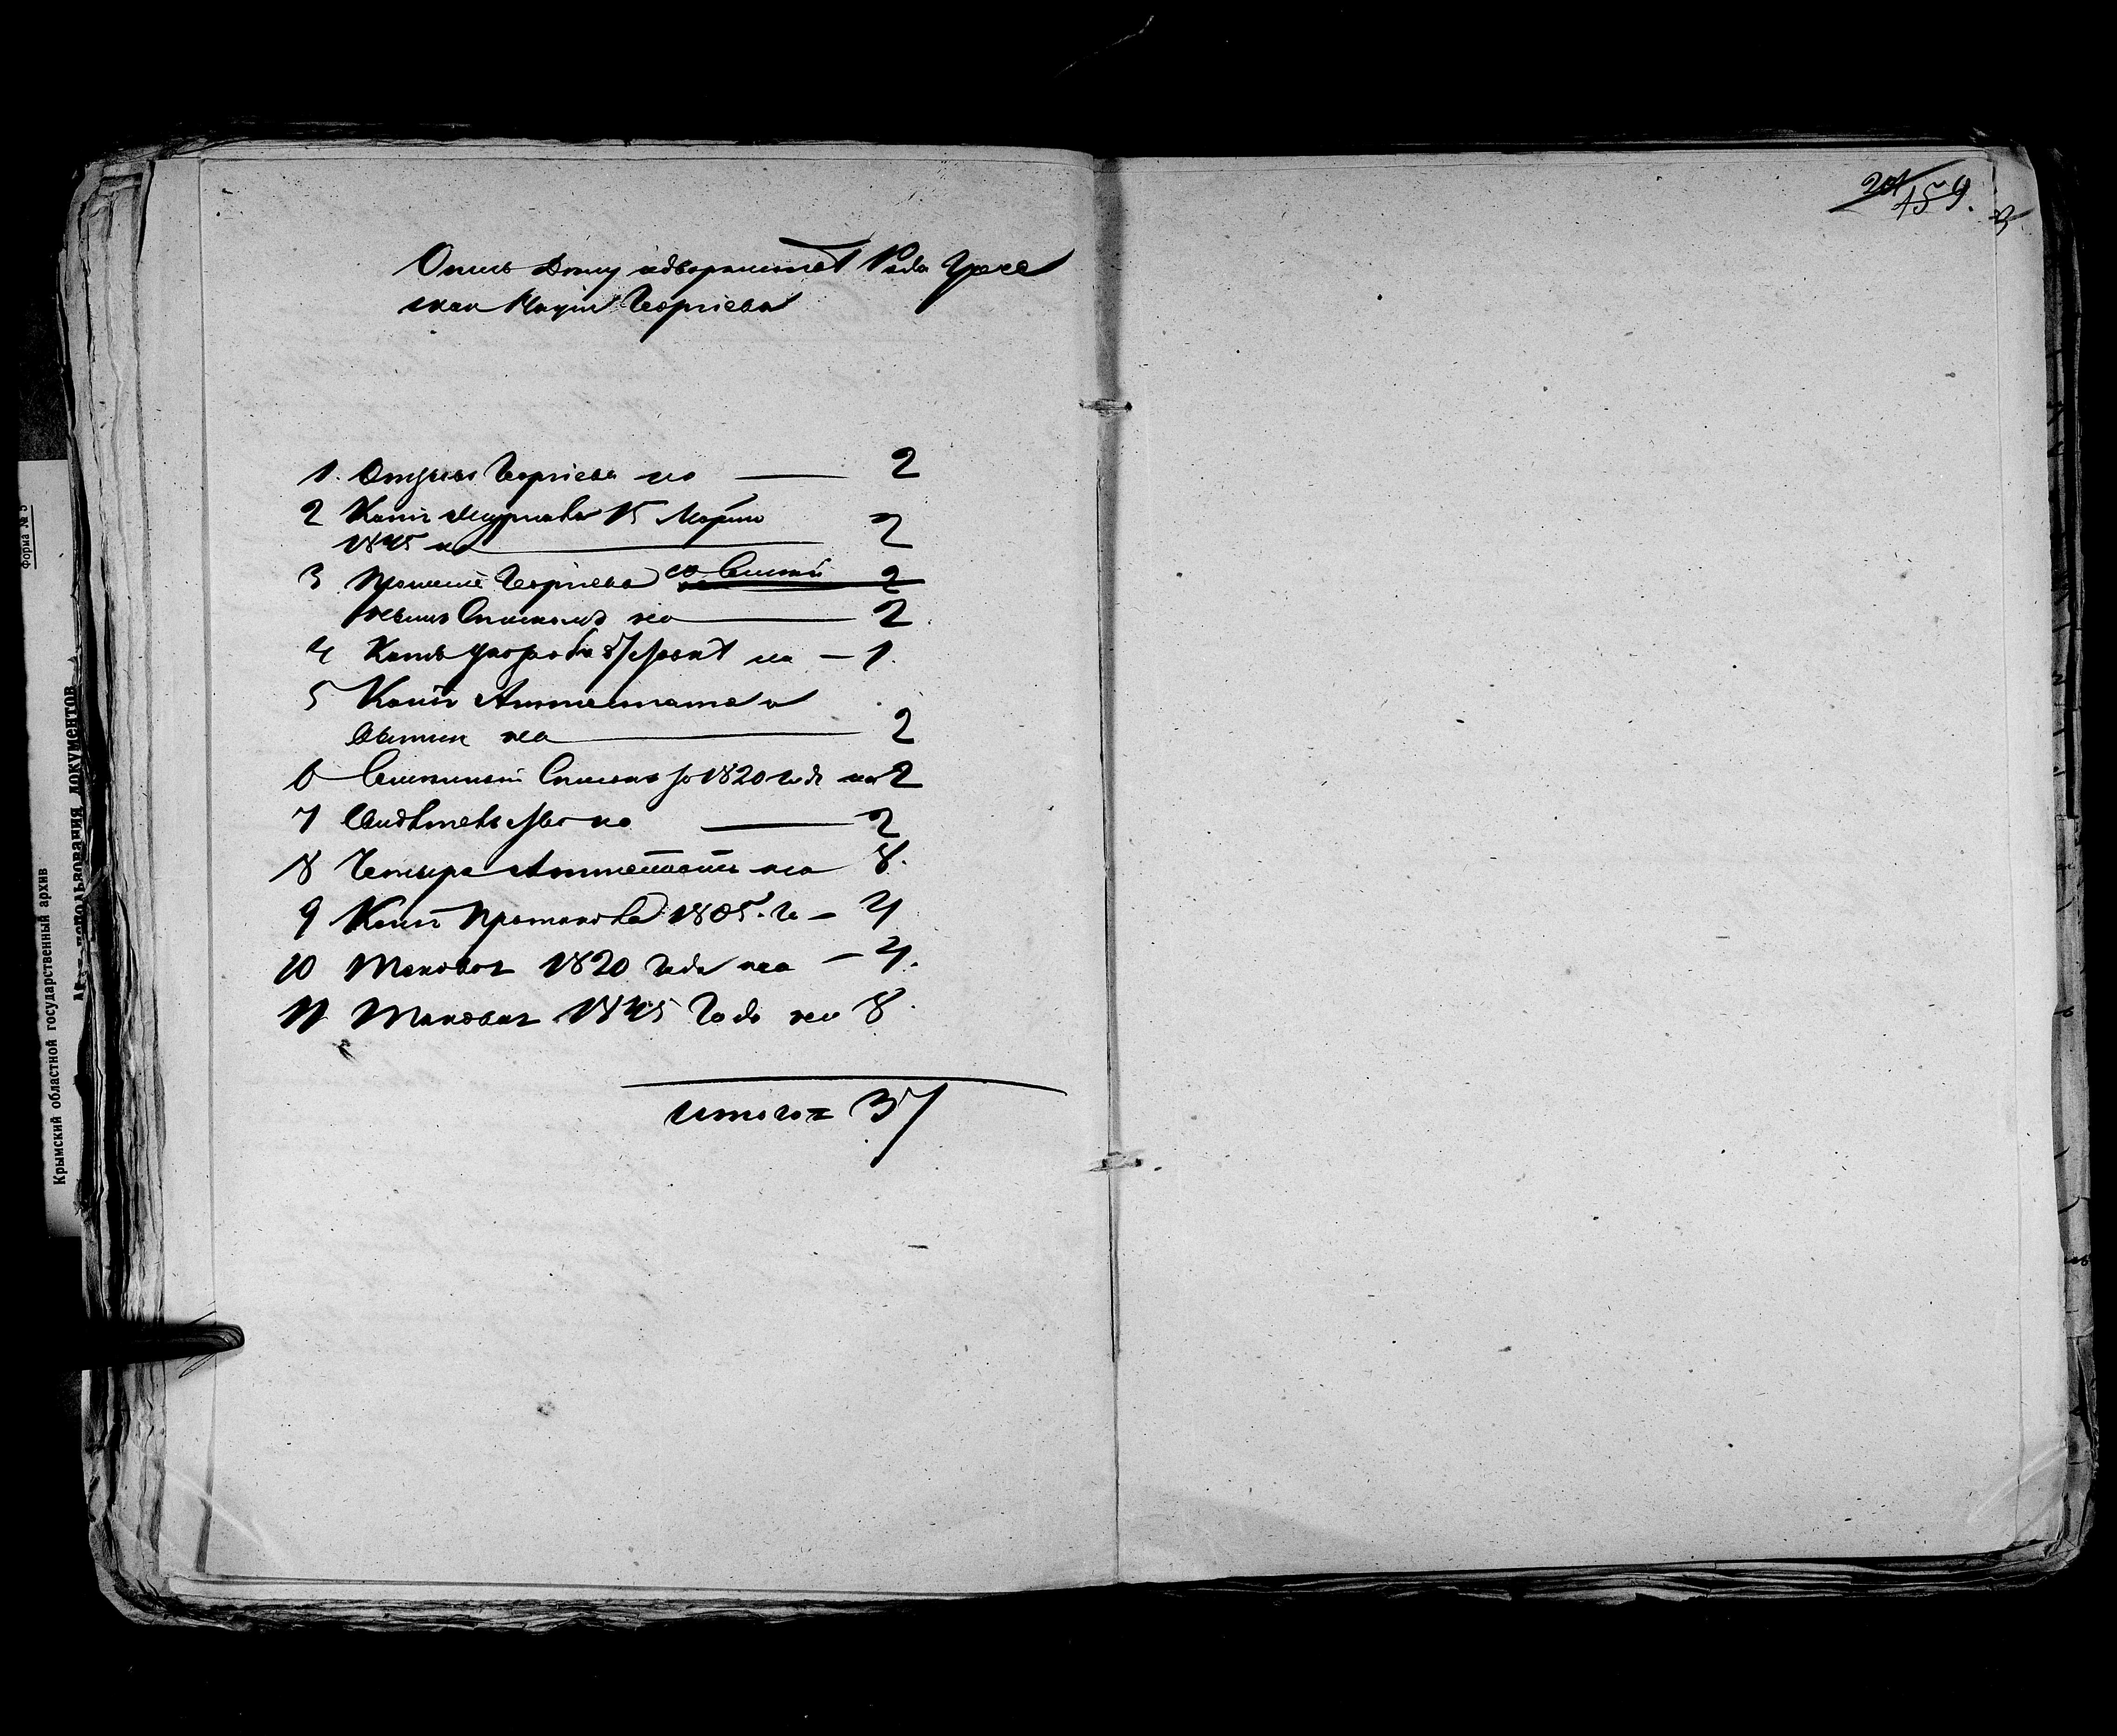 Опись Делу о дворянстве Рода Грече
ская Нация Георгиева
1. Отзывъ Георгіева на — 2
2 Копія Журнала 15 Марта 2
1845 на
3 Прошеніе Георгіева со Семей 2
нымъ Спискомъ на — 2
4 Копія указа на — 1.
5 Копія Аттестата о
на — 2
6 Семейный Списокъ за 1820 годъ на 2
7 Свидѣтельство на — 2
8 Четыре Аттестата на 8.
9 Копія Протокола 1805. Го — 4
10 Таковая 1820 Года на — 4.
11 Таковая 1845 Года на 8.
итого = 37
159.
Форма № 5
Крымский областной государственный архив
использования документов